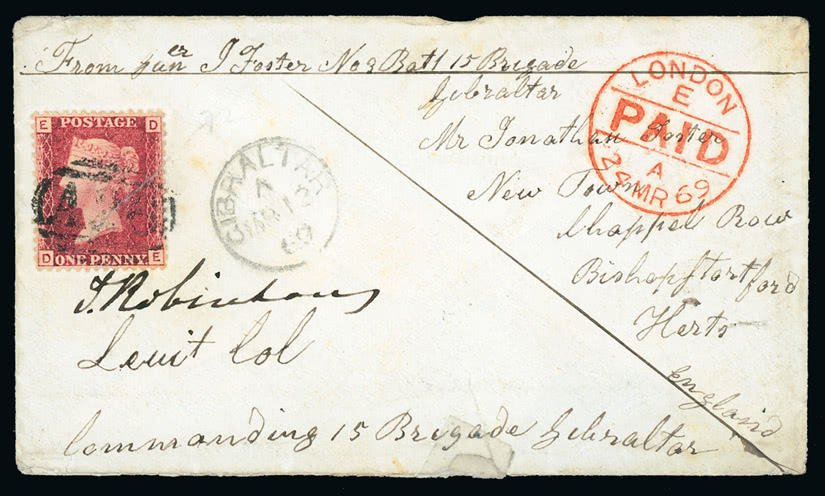 From Guner J Foster No 3 Batt 15 Brigade
Gibraltar
Mr Jonathan Foster
New Town
Chappel Row
Bishopstortford
Herts
England
LONDON
E
PAID
A
24 MR 69
E D
POSTAGE
ONE PENNY
D E
GIBRALTAR
A
MR 13
69
J. Robinson
Leuit Col
Commanding 15 Brigade Gibraltar